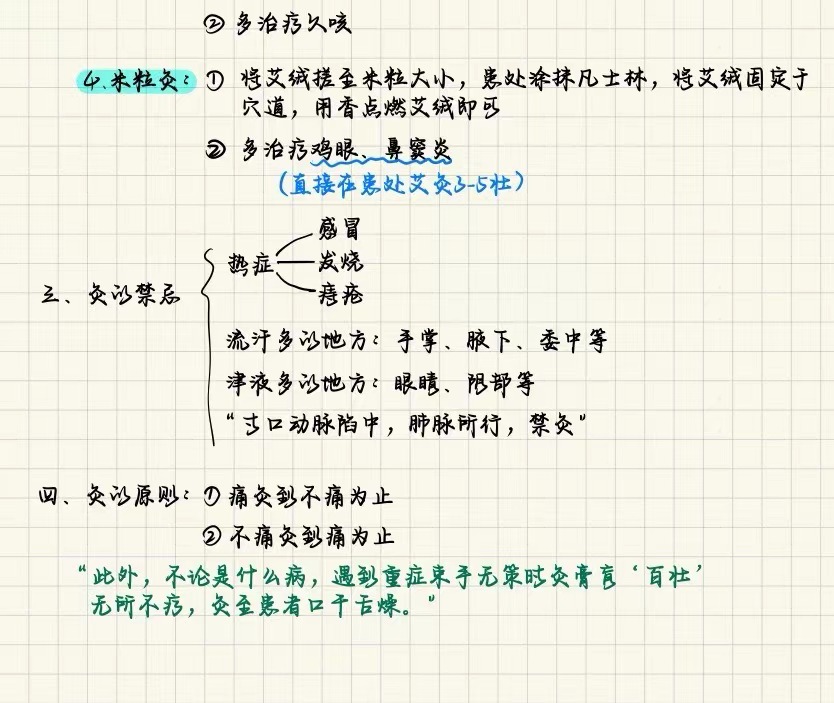 ② 多治疗久咳
4.米粒灸：① 将艾绒搓至米粒大小，患处涂抹凡士林，将艾绒固定于
穴道，用香点燃艾绒即可
② 多治疗鸡眼、鼻窦炎
（直接在患处艾灸3-5壮）
三、灸的禁忌
热症
感冒
发烧
痔疮
流汗多的地方：手掌、腋下、委中等
津液多的地方：眼睛、阴部等
“寸口动脉陷中，肺脉所行，禁灸”
四、灸的原则：① 痛灸到不痛为止
② 不痛灸到痛为止
“此外，不论是什么病，遇到重症束手无策时灸膏肓‘百壮’
无所不疗，灸至患者口干舌燥。”